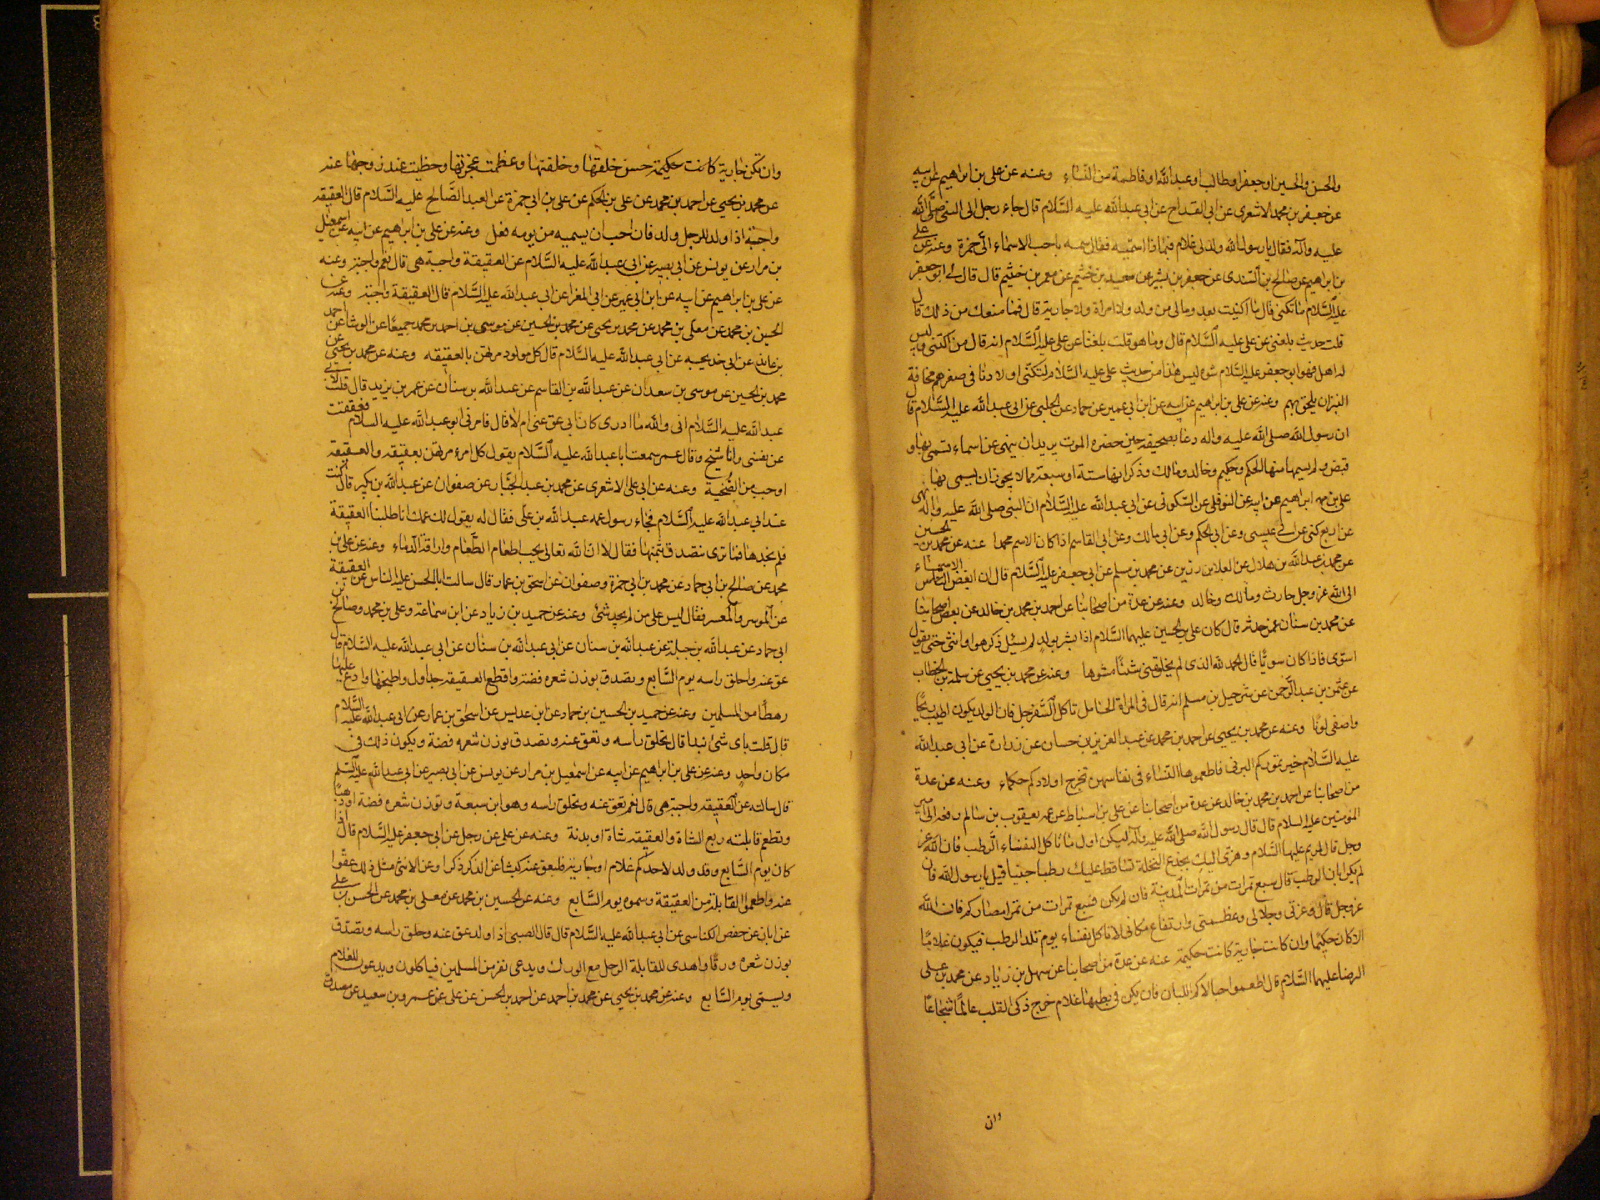 والحسن والحسين او جعفر او طالب او عبدالله او فاطمة من النساء وعنه عن علي بن ابراهيم عن ابيه
عن جعفر بن محمد الاشعرى عن ابن القداح عن ابى عبدالله عليه السلام قال جاء رجل الى النبي صلى الله
عليه وآله فقال يا رسول الله ولد لى غلام فماذا اسميه فقال سمه باحب الاسماء الى حمزة وعنه عن على
بن ابراهيم عن صالح بن السندى عن جعفر بن بشير عن سعيد بن خثيم عن معمر بن خثيم قال قال لى ابو جعفر
عليه السلام ما تكنى قال ما اكتنيت بعد ومالى من ولد ولا امراة ولا جارية قال فما يمنعك من ذلك قال
قلت حديث بلغنى عن على عليه السلام قال وما هو قلت بلغنا عن على عليه السلام انه قال من اكتنى وليس
له اهل فهو ابو جعر فقال ابو جعفر عليه السلام شوه ليس هذا من حديث على عليه السلام انا لنكنى اولادنا فى صغرهم مخافة
النبز ان يلحق بهم وعنه عن على بن ابراهيم عن ابيه عن ابن ابى عمير عن حماد عن الحلبى عن ابى عبدالله عليه السلام قا
ان رسول الله صلى الله عليه واله دعا بصحيفة حين حضره الموت يريد ان ينهى عن اسماء يتسمى بها و
قبض ولم يسمها منها الحكم وحكيم وخالد ومالك وذكر انها ستة او سبعة مما لا يجوز ان يسمى بها
على بن ابراهيم عن ابيه عن النوفلى عن السكونى عن ابى عبدالله عليه السلام ان النبى صلى الله عليه واله نهى
عن اربع كنى عن ابى عيسى وعن ابى الحكم وعن ابى مالك وعن ابى القاسم اذا كان الاسم محمدا عنه عن محمد بن الحسين
عن محمد بن عبدالله بن هلال عن العلا بن رزين عن محمد بن مسلم عن ابى جعفر عليه السلام قال ان ابغض الاسماء
الى الله عز وجل حارث ومالك وخالد وعنه عن عدة من اصحابنا عن احمد بن محمد بن خالد عن بعض اصحابنا
عن محمد بن سنان عمن حدثه قال كان على بن الحسين عليهما السلام اذا بشر بولد لم يسئل ذكر هو او انثى حتى يقول
استوى فاذا كان سويا قال الحمد لله الذى لم يخلق منى شيئا مشوها وعنه عن محمد بن يحيى عن سلمة بن الخطاب
عن عثمان بن عبد الرحمن عن شرحبيل بن مسلم انه قال فى المراة الحامل تاكل السفرجل فان الولد يكون اطيب ريحا
واصفى لونا وعنه عن محمد بن يحيى عن احمد بن محمد عن عبد العزيز بن حسان عن زرارة عن ابى عبدالله
عليه السلام خير تموركم البرنى فاطعموها النساء فى نفاسهن تخرج اولادكم حكماء وعنه عن عدة
من اصحابنا عن احمد بن محمد بن خالد عن عدة من اصحابنا عن على بن اسباط عن عمه يعقوب بن سالم رفعه الى امير
المؤمنين عليه السلام قال قال رسول الله صلى الله عليه وآله ليكن اول ما تاكل النفساء الرطب فان الله عز
وجل قال لمريم عليها السلام وهزى اليك بجذع النخلة تساقط عليك رطبا جنيا قيل يا رسول الله فان
لم يكن ابان الرطب قال سبع تمرات من تمرات المدينة فان لم يكن فسبع تمرات من تمر امصاركم فان الله
عز وجل قال وعزتى وجلالى وعظمتى وارتفاع مكانى لا تاكل نفساء يوم تلد الرطب فيكون غلاما
الا كان حكيما وان كانت جارية كانت حكيمة عنه عن عدة من اصحابنا عن سهل بن زياد عن محمد بن على
الرضا عليهما السلام قال اطعموا حبالاكم اللبان فان يكن فى بطنها غلام خرج ذكى القلب عالما شجاعا
وان
وان تكن جارية كانت حكيمة حسن خلقها وخلقتها وعظمت عجيزتها وحظيت عند زوجها عنه
عن محمد بن يحيى عن احمد بن محمد عن على بن الحكم عن على بن ابى حمزة عن العبد الصالح عليه السلام قال العقيقة
واجبة اذا ولد للرجل ولد فان احب ان يسميه من يومه فعل وعنه عن على بن ابراهيم عن ابيه عن اسمعيل
بن مرار عن يونس عن ابى بصير عن ابى عبدالله عليه السلام عن العقيقة واجبة هى قال نعم واجبة وعنه
عن على بن ابراهيم عن ابيه عن ابن ابى عمير عن ابى المغرا عن ابى عبدالله عليه السلام قال العقيقة واجبة وعنه عن
الحسين بن محمد عن معلى بن محمد عن محمد بن يحيى عن محمد بن الحسين عن موسى بن احمد بن محمد جميعا عن الوشا عن احمد
بن عائذ عن ابى خديجه عن ابى عبدالله عليه السلام قال كل مولود مرتهن بالعقيقه وعنه عن محمد بن يحيى عن
محمد بن الحسين عن موسى بن سعدان عن عبدالله بن القاسم عن عبدالله بن سنان عن عمر بن يزيد قال قلت لابى
عبدالله عليه السلام انى والله ما ادرى كان ابى عق عنى ام لا قال فامرنى ابو عبدالله عليه السلام فعققت
عن نفسى وانا شيخ وقال عمر سمعت ابا عبدالله عليه السلام يقول كل امرء مرتهن بعقيقه والعقيقه
اوجب من الضحية وعنه عن ابى على الاشعرى عن محمد بن عبد الجبار عن صفوان عن عبدالله بن بكير قال كنت
عند ابى عبدالله عليه السلام فجاء رسول عمه عبدالله بن على فقال له يقول لك عمك انا طلبنا العقيقة
فلم نجدها فما ترى نتصدق بثمنها فقال لا ان الله تعالى يحب اطعام الطعام واراقة الدماء وعنه عن على بن
محمد عن صالح بن ابى حماد عن محمد بن ابى حمزة وصفوان عن اسحق بن عمار قال سالت ابا الحسن عليه السلام عن العقيقة
عن الموسر والمعسر فقال ليس على من لم يجد شئ وعنه عن حميد بن زياد عن ابن سماعة وعلى بن محمد وصالح بن
ابى حماد عن عبدالله بن جبلة عن عبدالله بن سنان عن ابى عبدالله بن سنان عن ابى عبدالله عليه السلام قال
عق عنه واحلق راسه يوم السابع وتصدق بوزن شعره فضة واقطع العقيقه جداول واطبخها وادع عليها
رهطا من المسلمين وعنه عن حميد بن الحسين بن حماد عن ابن عديس عن اسحق بن عمار عن ابى عبدالله عليه السلام
قال قلت باى شئ نبدا قال تحلق راسه وتعق عنه وتصدق بوزن شعره فضة ويكون ذلك فى
مكان واحد وعنه عن على بن ابراهيم عن ابيه عن اسمعيل بن مرار عن يونس عن ابى بصير عن ابى عبدالله عليه السلم
قال سالته عن العقيقه واجبة هى قال نعم تعق عنه وتحلق راسه وهو ابن سبعة وتوزن شعره فضة او ذهبا
وتطعم قابلته ربع الشاة والعقيقه شاة او بدنة وعنه عن على عن رجل عن ابى جعفر عليه السلام قال اذا
كان يوم السابع وقد ولد لاحدكم غلام او جارية فليعق عنه كبشا عن الذكر ذكرا وعن الانثى مثل ذلك عقوا
عنه واطعموا القابلة من العقيقة وسموه يوم السابع وعنه عن الحسين بن محمد عن معلى بن محمد عن الحسن بن على
عن ابان عن حفص الكناسى عن ابى عبدالله عليه السلام قال قال الصبى اذا ولد عق عنه وحلق راسه وتصدق
بوزن شعره ورقا واهدى للقابلة الرجل مع الورك ويدعى نفر من المسلمين فياكلون ويدعون للغلام
ويسمى يوم السابع وعنه عن محمد بن يحيى عن محمد بن احمد عن احمد بن الحسن عن على عن عمرو بن سعيد عن مصدق